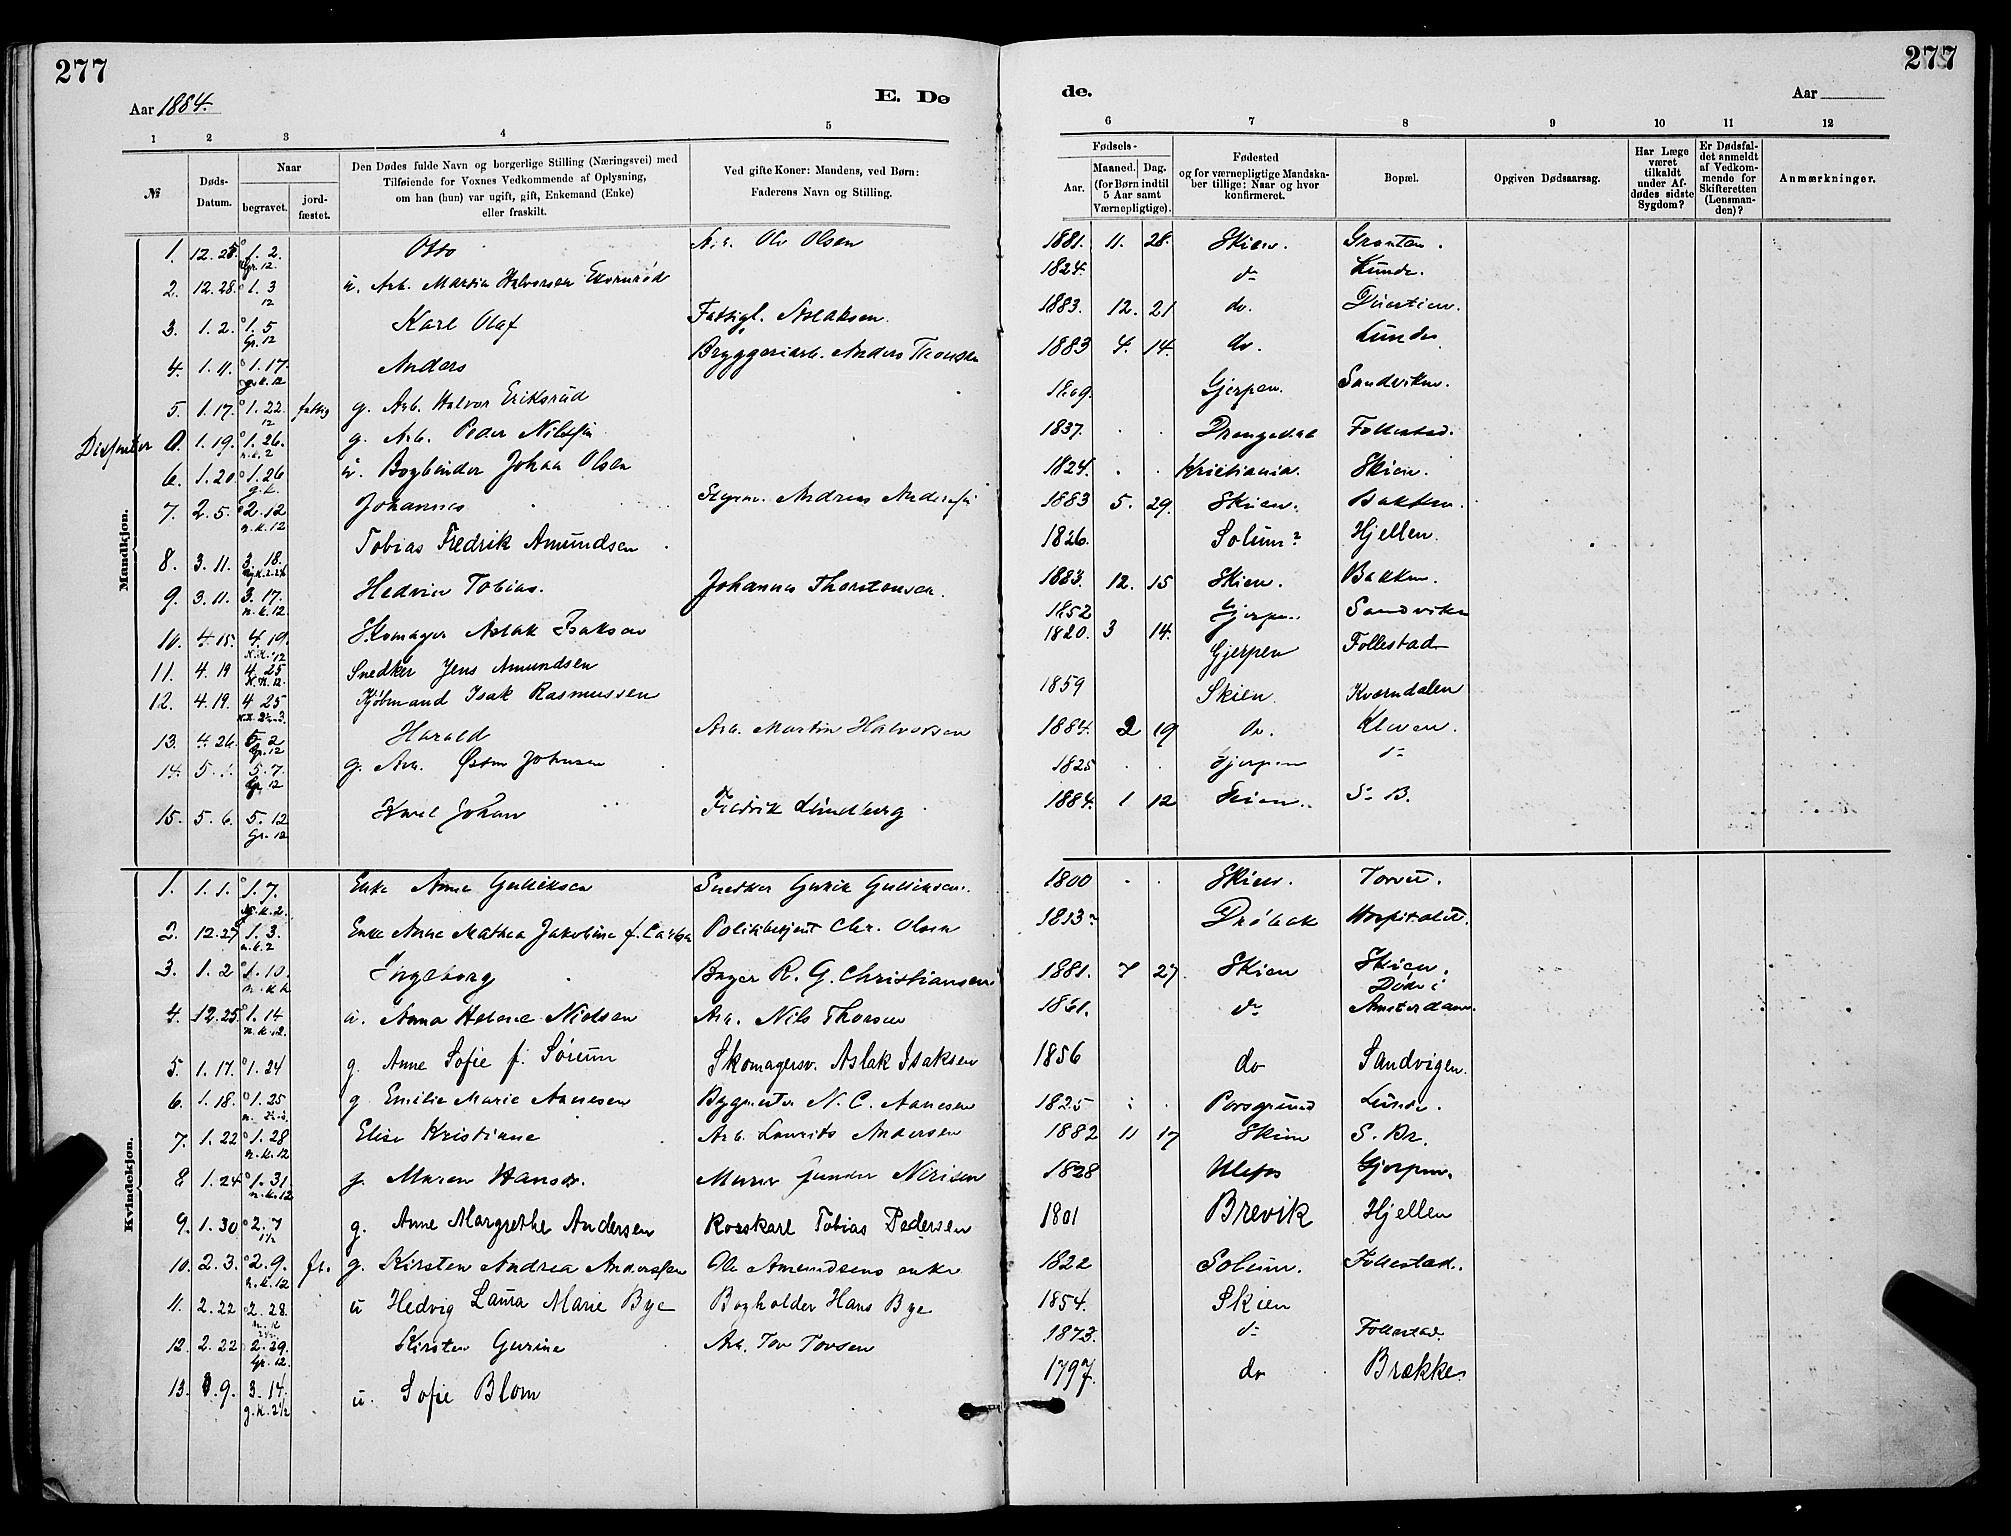 277
277
Aar 1884.
E. Dø
de.
Aar
1 2 3 4 5 6 7 8 9 10 11 12
№
Døds-Datum.
Naar
begravet.
jord-fæstet.
Den Dødes fulde Navn og borgerlige Stilling (Næringsvei) med
Tilføiende for Voxnes Vedkommende af Oplysning,
om han (hun) var ugift, gift, Enkemand (Enke)
eller fraskilt.
Ved gifte Koner: Mandens, ved Børn:
Faderens Navn og Stilling.
Fødsels-
Aar.
Maaned. Dag.
(for Børn indtil
5 Aar samt
Værnepligtige).
Fødested
og for værnepligtige Mandska-
ber tillige: Naar og hvor
konfirmeret.
Bopæl.
Opgiven Dødsaarsag.
Har Læge
været
tilkaldt
under Af-
dødes sidste
Sygdom?
Er Dødsfal-
det anmeldt
af Vedkom-
mende for
Skifteretten
(Lensman-
den)?
Anmærkninger.
Mandkjøn.
1. 12. 25. 1. 2. Gr. 12. Otto Arb. Ole Olsen 1881. 11. 28. Skien. Graaten.
2. 12. 28. 1. 3 12 u. Arb. Martin Halvorsen 1824. do Lunde.
3. 1. 2. 1. 5 Gr. 12 Karl Olaf Fattigl. Aslaksen. 1883. 12. 21 do.
4. 1. 11. 1. 17. g.k. 12 Anders Bryggeriarb. Anders Thomsen 1883 4. 14. do. Lunde
5. 1. 17. 1. 22. 12 fattig g. Arb. Halvor Eriksrud Gjerpen. Sandviken.
Dissenter 0. 1. 19. 1. 26. n.k. 2 g. Arb. Peder Nilssen 1837. Drangedal Follestad.
6. 1. 20 1. 26 g.k. u. Bogbinder Johan Olsen 1824. Kristiania. Skien.
7. 2. 5. 2. 12 n.k. 12 Johannes Styrm. Andreas Anderssen 1883 5. 29. Skien. Bakken.
8. 3. 11. 3. 18. Tobias Fredrik Amundsen 1826. Solum? Hjellen.
9. 3. 11. 3. 17. n.k. 12 Hedvin Tobias. Johannes Thorstensen. 1883. 12. 15 Skien. Bakken.
10. 4. 15. 4. 19. K.K. 12 Skomager Aslak Isaksen 1852 Gjerpen. Sandviken
11. 4. 19 4. 25 K.K. 12. Snedker Jens Amundsen 1820. 3 14. Gjerpen Follestad
12. 4. 19. 4 25 Kjøbmand Isak Rasmussen 1859 Skien. Kværndalen
13. 4. 26. 5. 2 Gr. 12 Harald Arb. Martin Halvorsen 1884. 2 19 do. Kleven.
14. 5. 1. 5. 7. Gr. 12 g. Arb. Østen Johnsen 1825 Gjerpen do
15. 5. 6. 5. 12 Gr. 12 Karl Johan Fredrik Lundberg 1884. 1 12 Skien. S. B.
Kvindekjøn.
1. 1. 1. 1. 7. g.k. 2. Enke Anne Gulliksen Snedker Gurik Gulliksen. 1800 Skien. Torvet.
2. 12. 27 1. 3. n.k. 2 Enke Anne Mathea Jakobine f. Carlsen Politibetjent Chr. Olsen 1813? Drøbak Hospitalet.
3. 1. 2 1. 10. n.k. Ingeborg Bager R. G. Christiansen 1881. 7 27. Skien Skien.
4. 12. 25 1. 14 n.k. 12. u. Anna Helene Nielsen Arb. Nils Thorsen 1861. do Døde i Amsterdam.
5. 1. 17. 1. 24 g. Anne Sofie f. Sørum Skomagersv. Aslak Isaksen 1856 do Sandvigen.
6. 1. 18. 1. 25 g Emilie Marie Aanesen Bygmester N. C. Aanesen 1825 Porsgrund Lunde.
7. 1. 22 1. 28 n.k. 12 Elise Kristiane Arb. Laurits Andersen 1882 11 17 Skien S. Br.
8 1. 24 1. 31 n.k. 12 g. Maren Hansd. Murer Gunder Nirisen 1828 Ulefos Gjerpen.
9. 1. 30 2. 7 g. Anne Margrethe Andersen Rorskarl Tobias Pedersen 1801 Brevik Hjellen
10. 2. 3. 2. 9. n.k. 12 fr. g. Kirsten Andrea Anderssen Ole Amundsens enke 1822 Solum. Follestad.
11. 2. 22 2. 28. n.k u Hedvig Laura Marie Bye Bogholder Hans Bye 1854. Skien
12. 2. 22 2. 29. Gr. 12. Kirsten Gurine Arb. Tov Tovsen 1873. do Follestad.
13. 3. 9. 3. 14. g.k. 2½ u. Sofie Blom 1797. do Brække.